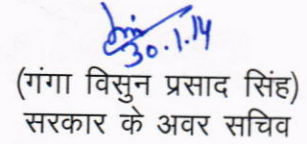 30.1.14
(गंगा विसुन प्रसाद सिंह)
सरकार के अवर सचिव